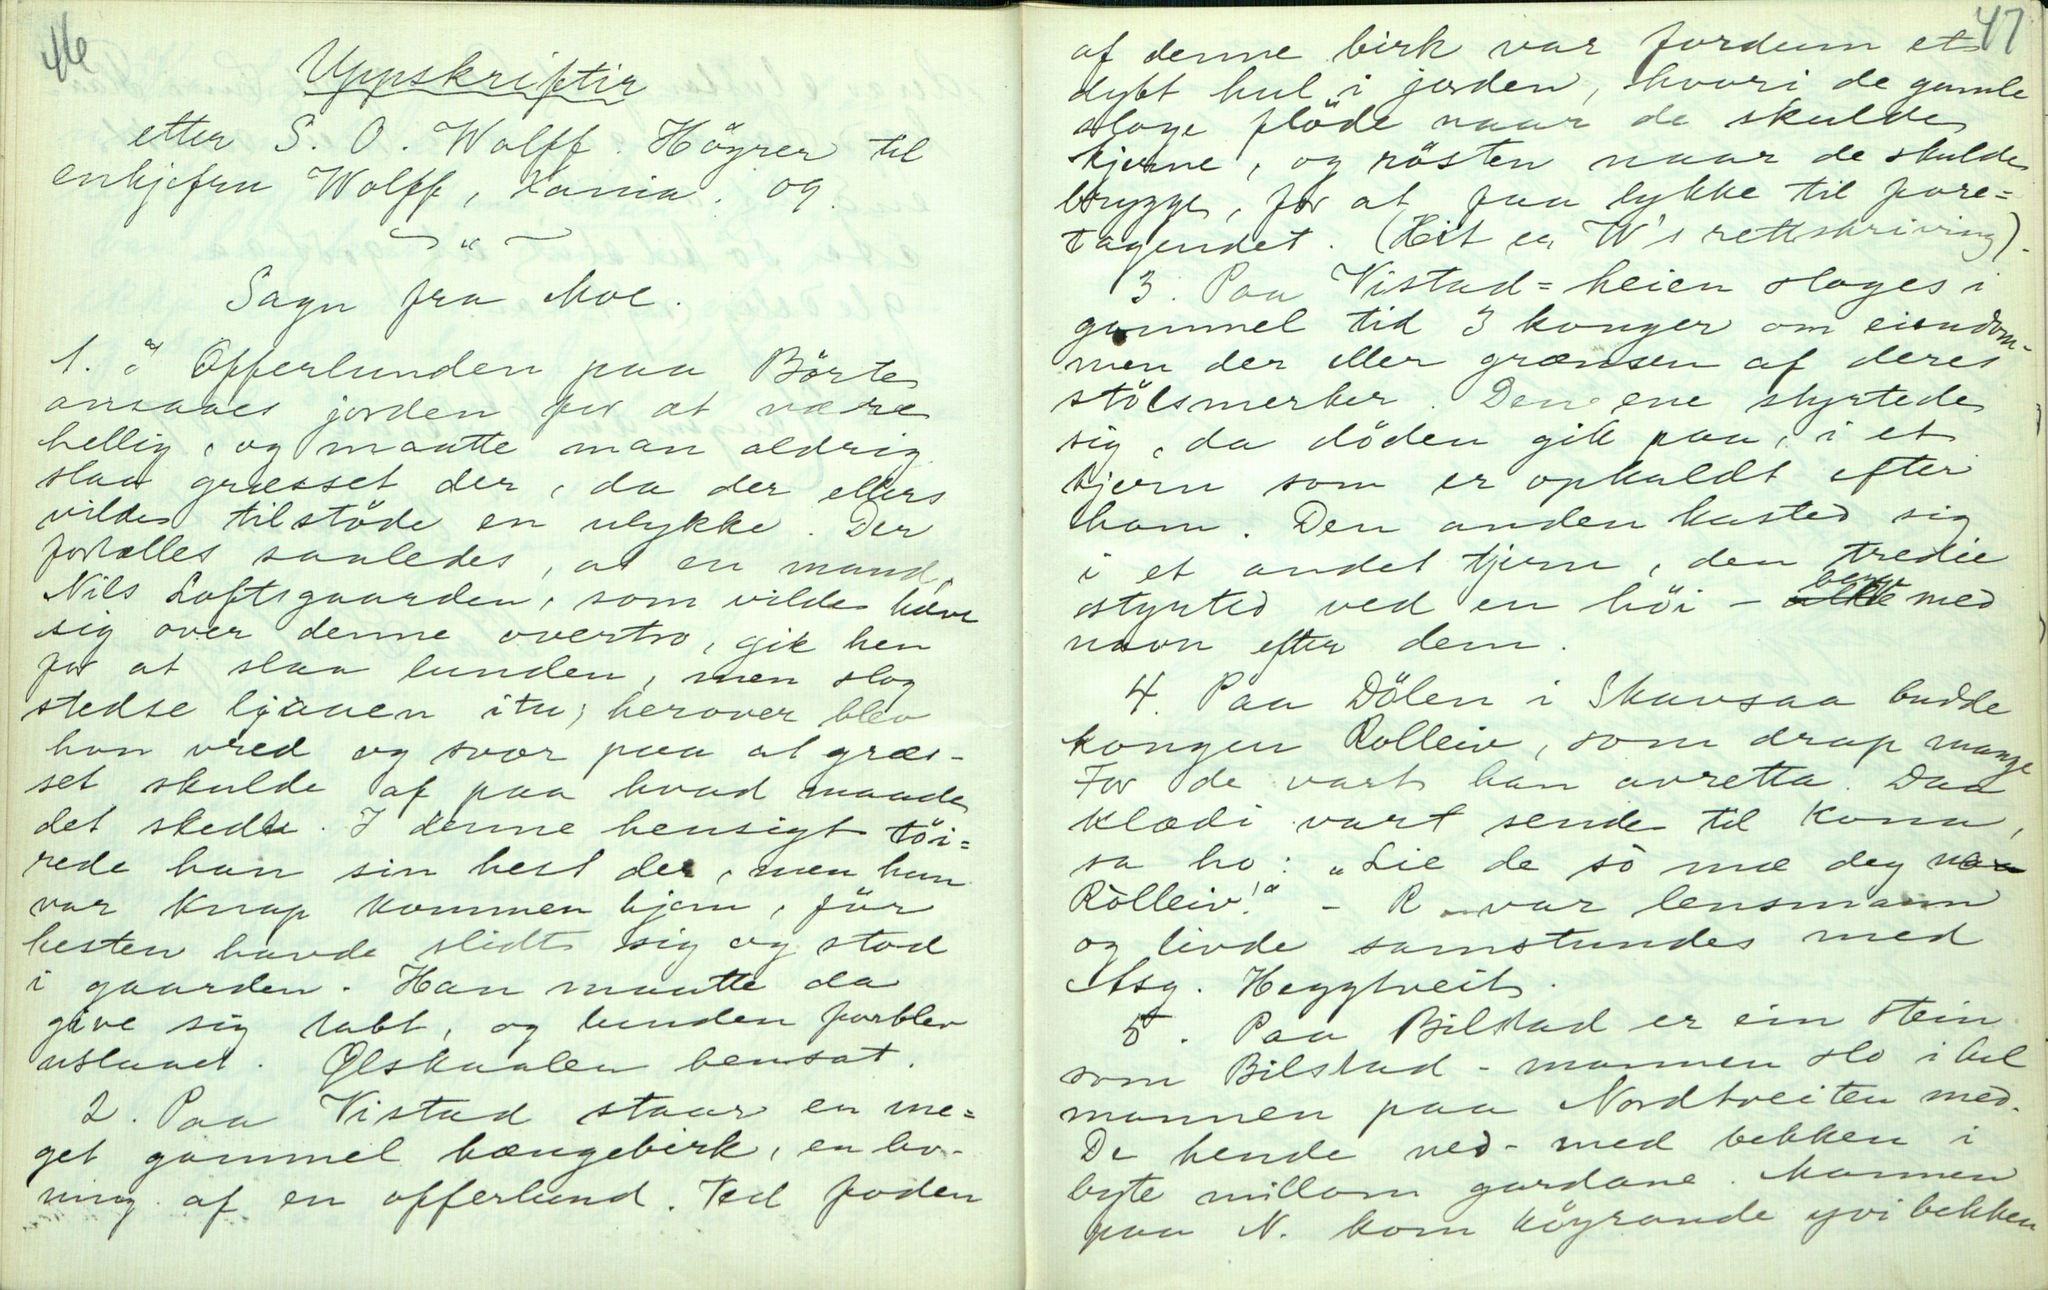 46
Uppskriftir
etter S. O. Wolff. Höyrer til
enkjefru Wolff, Kania. og
Sagn fra Moe.
1. "I Offerlunden paa Börte
ansaaes jorden for at være
hellig, og maatte man aldrig
slaa græsset der, da der ellers
vilde tilstöde en ulykke. Der
fortælles saaledes, at en mand,
Nils Loftsgaarden, som vilde hæve
sig over denne overtro, gik hen
for at slaa lunden, men slog
stedse ljaaen itu; herover blev
han vred og svor paa at græs-
set skulde af paa hvad maade
det skede. I denne hensigt töi=
rede han sin hest der, men han
var knap kommen hjem, för
hesten havde slidt sig og stod
i gaarden. Han maatte da
give sig tabt, og lunden forblev
uslaaet. Ølskaalen hensat.
2. Paa Vistad staar en me=
get gammel hængebirk, en lev-
ning af en offerlund. Ved foden
47
af denne birk var fordum et
dybt hul i jorden, hvori de gamle
sloge flöde naar de skulde
kjerne, og rösten naar de skulde
brygge, for at faa lykke til fore=
tagendet. (Hit er W's rettskriving).
3. Paa Vistad=heien sloges i
gammel tid 3 konger om eiendom-
men der eller grænsen af deres
stölsmerker. Den ene styrtede
sig, da döden gik paa, i et
tjern som er opkaldt efter
ham. Den anden kasted sig
i et andet tjern, den tredie
styrted ved en höi - bærer med
navn efter dem.
4. Paa Dölen i Skavsaa budde
kongen Rolleiv, som drap mange
For de vart han avretta. Daa
klædi vart sende til kona,
sa ho: "Lie de so mæ deg
Rolleiv!" - R. var lensmann
og livde samstundes med
Asg. Heggtveit.
5. Paa Bilstad er ein stein
som Bilstad-mannen slo ihel
mannen paa Nordtveiten med.
De hende ned-med bekken i
byte millom gardane. Mannen
paa N. kom köyrande yvi bekken